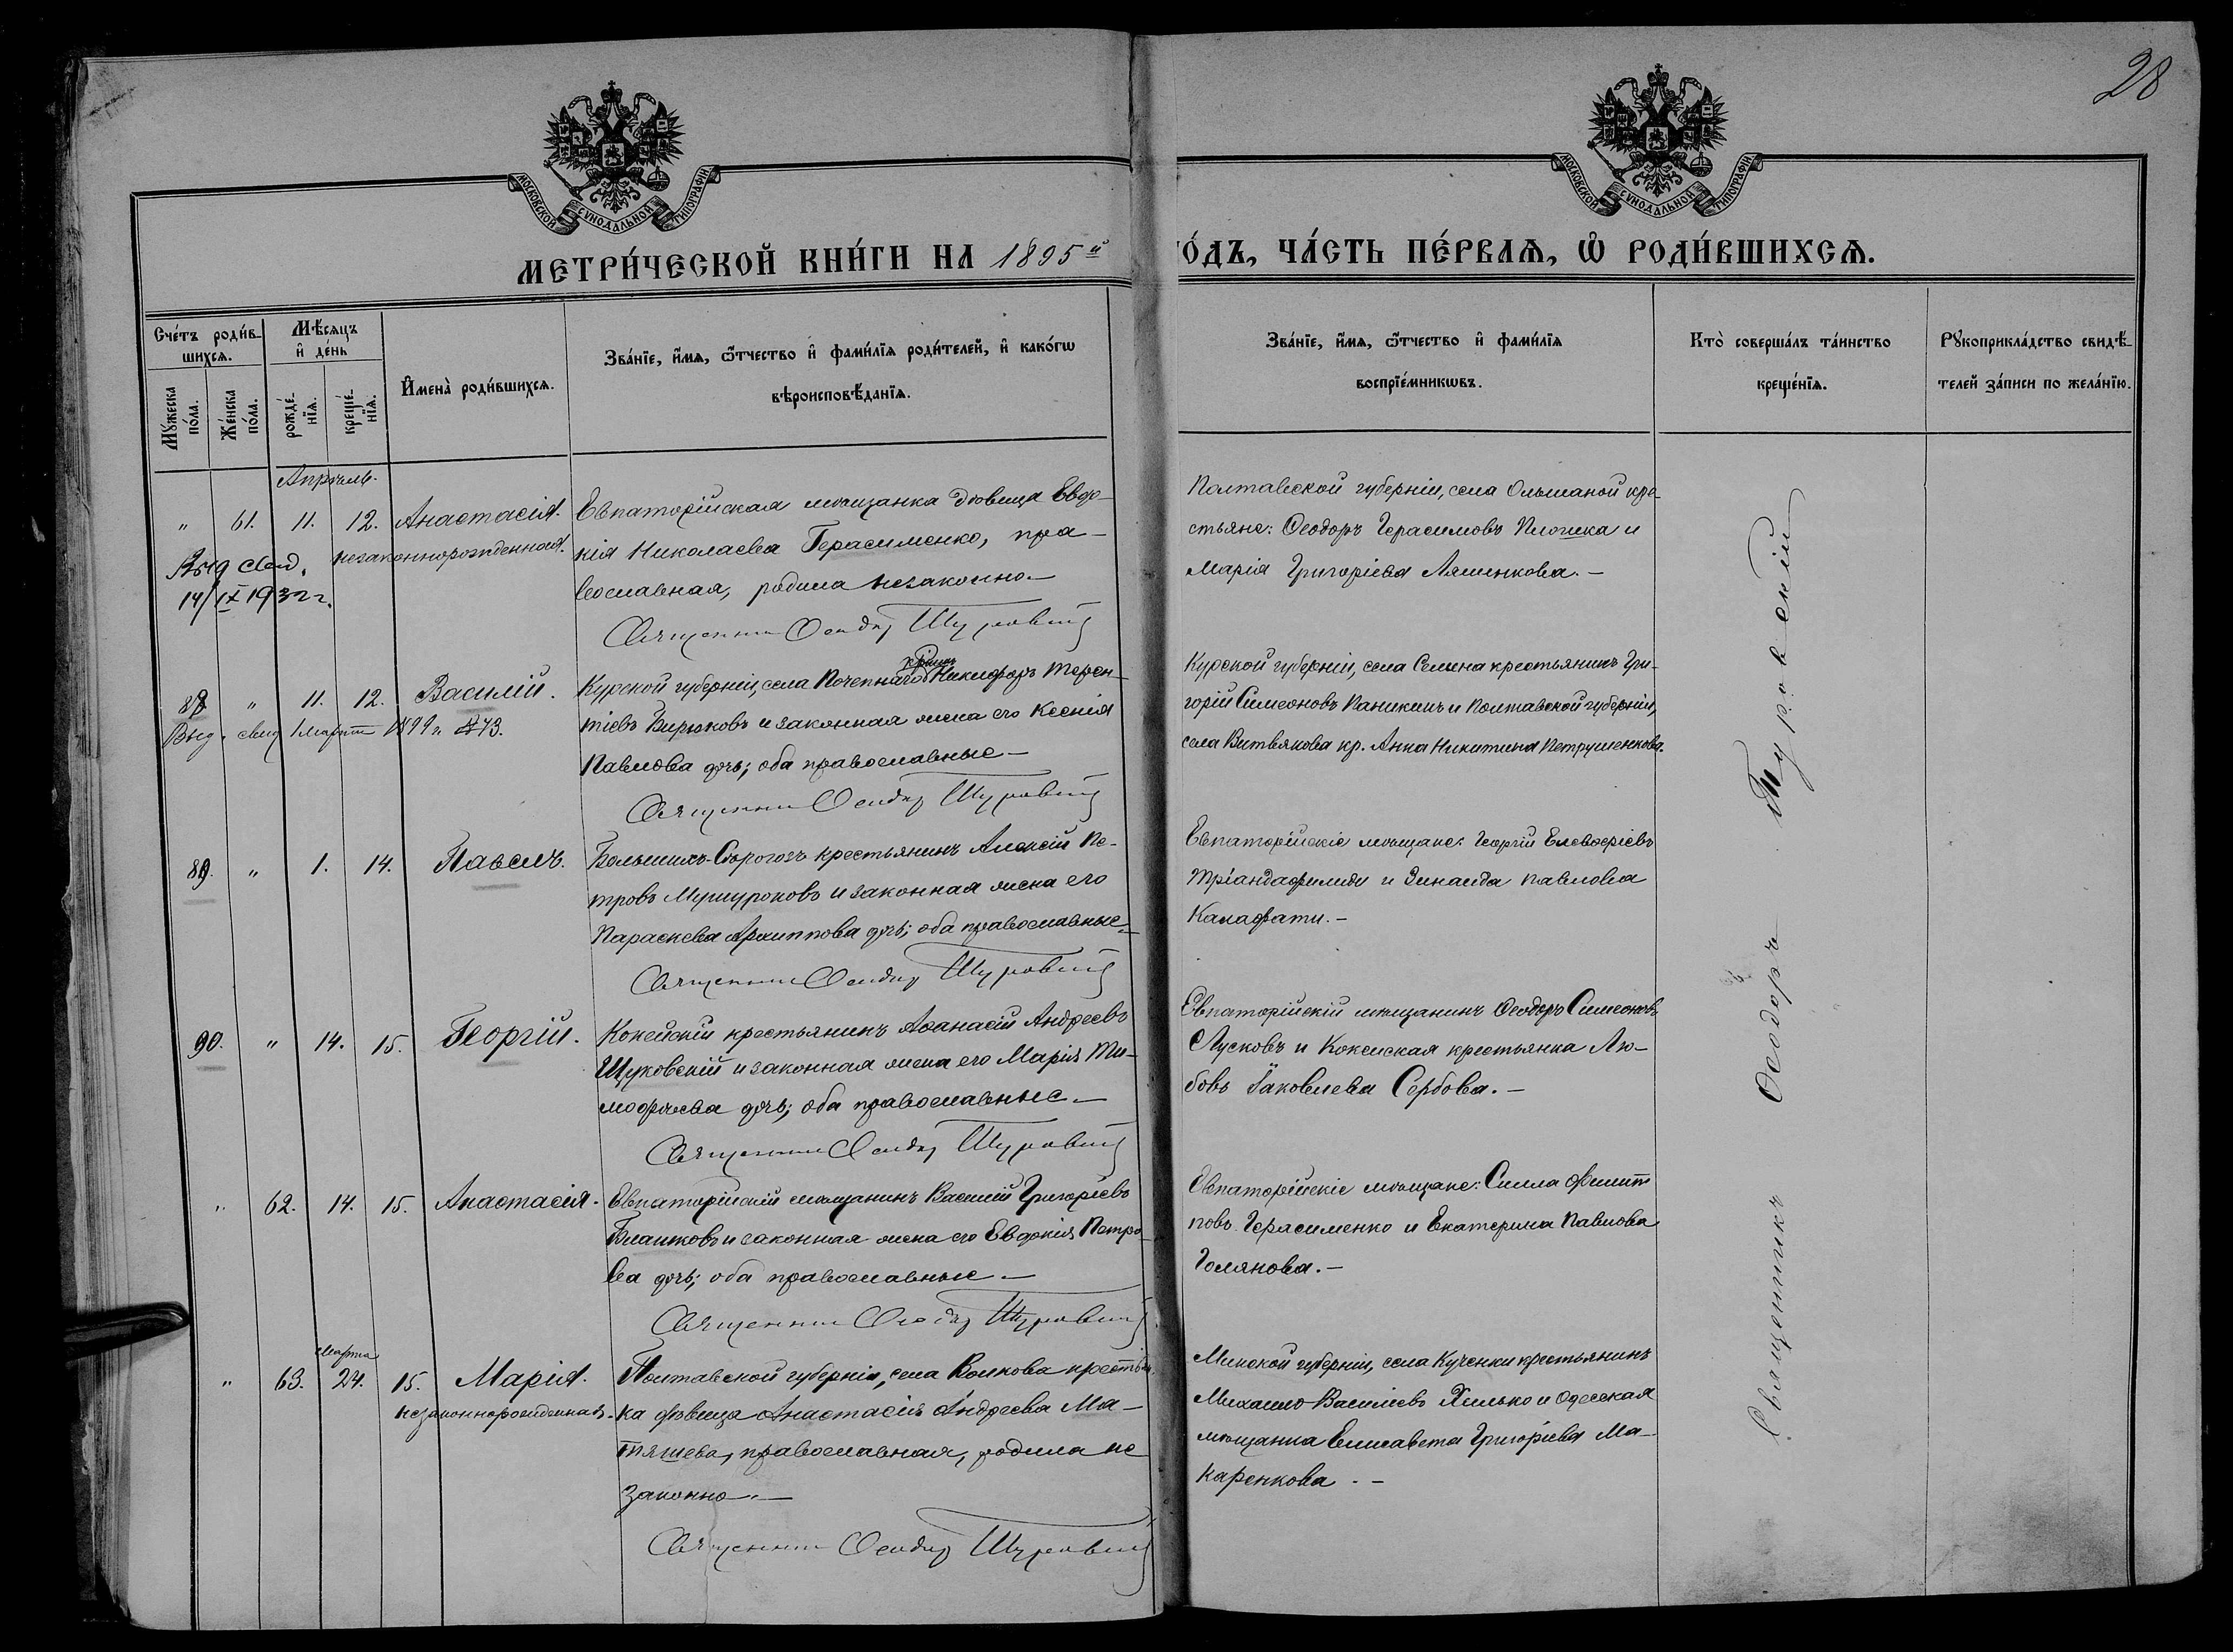 28
МОСКОВСКОЙ СѴНОДАЛЬНОЙ ТИПОГРАФІИ
МОСКОВСКОЙ СѴНОДАЛЬНОЙ ТИПОГРАФІИ
МЕТРИ́ЧЕСКОЙ КНИ́ГИ НА 1895й
ГО́ДЪ, ЧА́СТЬ ПЕ́РВАѦ, Ѡ҆ РОДИ́ВШИХСѦ.
Сче́тъ роди́в-
шихсѧ.
Мꙋ́жеска по́ла.
Же́нска по́ла.
Мѣ́сѧцъ и҆ де́нь
рожде́-нїѧ.
креще́-нїѧ.
И҆мена̀ роди́вшихсѧ.
Зва́нїе, и҆́мѧ, ѻ҆́тчество и҆ фами́лїѧ роди́телей, и҆ како́гѡ
вѣроисповѣ́данїѧ.
Зва́нїе, и҆́мѧ, ѻ҆́тчество и҆ фами́лїѧ
воспрїе́мникѡвъ.
Кто̀ соверша́лъ та́инство
креще́нїѧ.
Рꙋкоприкла́дство свидѣ́-
телей за́писи по жела́нїю.
Апрѣль.
" 61. 11. 12. Анастасія.
незаконнорожденная.
Выд свид.
14/IX 1932 г.
Евпаторійская мѣщанка дѣвица Евдо-
кія Николаева Герасименко, пра-
вославная, родила незаконно.—
Священникъ Ѳеодоръ Туровскій
Полтавской губерніи, села Ольшаной кре-
стьяне: Ѳеодоръ Герасимовъ и
Марія Григоріева Ляшенкова.—
88 " 11. 12. Василій.
Выд. свид 1 марта 1899 г. №73.
Курской губерніи, села Почепнаго Никифоръ Терен-
тіевъ Бирюковъ и законная жена его Ксенія
Павлова дочь; оба православные—
Священникъ Ѳеодоръ Туровскій
Курской губерніи, села Селина крестьянинъ Гри-
горій Симеоновъ Паникинъ и Полтавской губерніи,
села кр. Анна Никитина Петрушенкова.
89. " 1. 14. Павелъ.
Большихъ-Сорогозъ крестьянинъ Алексій Пе-
тровъ и законная жена его
Параскева Архиппова дочь; оба православные—
Священникъ Ѳеодоръ Туровскій
Евпаторійскіе мѣщане: Георгій Елевѳеріевъ
Тріандафилиди и Зинаида Павлова
Калафати.—
90. " 14. 15. Георгій.
Кокейскій крестьянинъ Аѳанасій Андреевъ
Щуковскій и законная жена его Марія Ти-
моѳеева дочь; оба православные.—
Священникъ Ѳеодоръ Туровскій
Евпаторійскій мѣщанинъ Ѳеодоръ Симеоновъ
Лусковъ и Кокейская крестьянка Лю-
бовь Іаковлева Сербова.—
" 62. 14. 15. Анастасія.
Евпаторійскій мѣщанинъ Василій Григоріевъ
и законная жена его Евдокія Петро-
ва дочь; оба православные.—
Священникъ Ѳеодоръ Туровскій
Евпаторійскіе мѣщане: Силла Филип-
повъ Герасименко и Екатерина Павлова
Голянова.—
Марта
" 63. 24. 15. Марія.
незаконнорожденная.
Полтавской губерніи, села Волкова крестьян-
ка дѣвица Анастасія Андреева Ма-
тяшева, православная, родила не
законно.—
Священникъ Ѳеодоръ Туровскій
Минской губерніи, села Кученки крестьянинъ
Михаилъ Василіевъ Хилько и Одесская
мѣщанка Елисавета Григоріева Ма-
каренкова.—
Священникъ Ѳеодоръ Туровскій